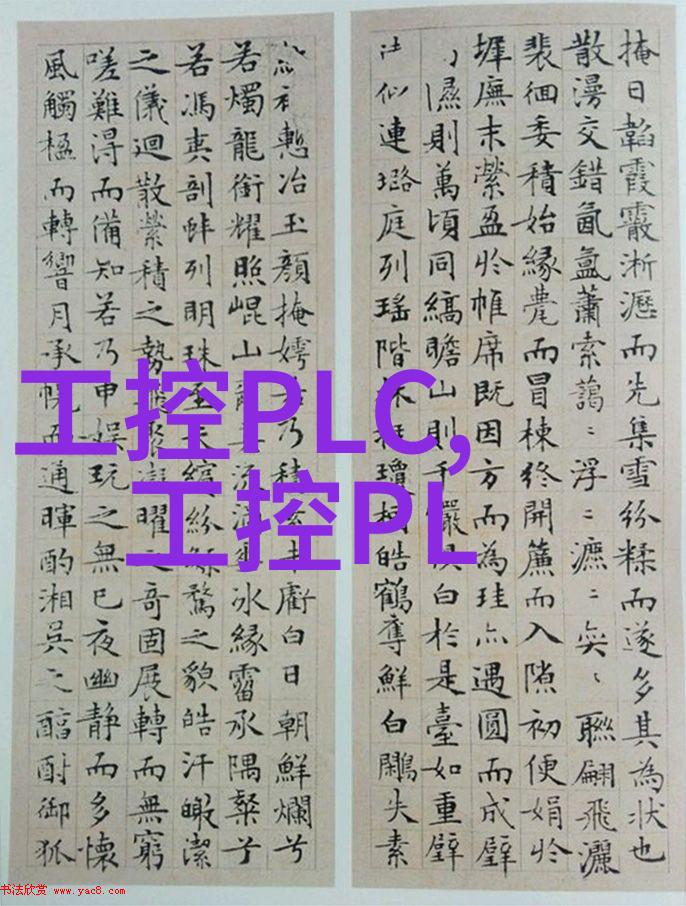 掩日韜霞霰淅瀝而先集雪紛糅而遂多其為狀也
散漫交錯氤氳蕭索藹〻浮〻瀌〻奕〻聯翩飛灑
裴徊委積始緣甍而冒棟終開簾而入隙初便娟於
墀廡末縈盈於帷席既因方而為珪亦遇圓而成璧
隰則萬頃同縞瞻山則千巖俱白於是臺如重璧
似連璐庭列瑤階林挺瓊柯皓鶴奪鮮白鷴失素
慙冶玉顏掩嫮若乃積素未虧白日朝鮮爛兮
若燭龍銜耀照崐山爾其流滴垂冰緣霤承隅粲兮
若馮夷剖蚌列明珠至夫繽紛繁騖之貌皓汗曒潔
之儀迴散縈積之勢飛聚凝曜之奇固展轉而無窮
嗟難得而備知若乃申娛玩之無已夜幽靜而多懷
風觸楹而轉響月承幌而通暉酌湘吳之醇酎御狐
工控PLC,
工控PL
书法欣赏 www.yac8.com